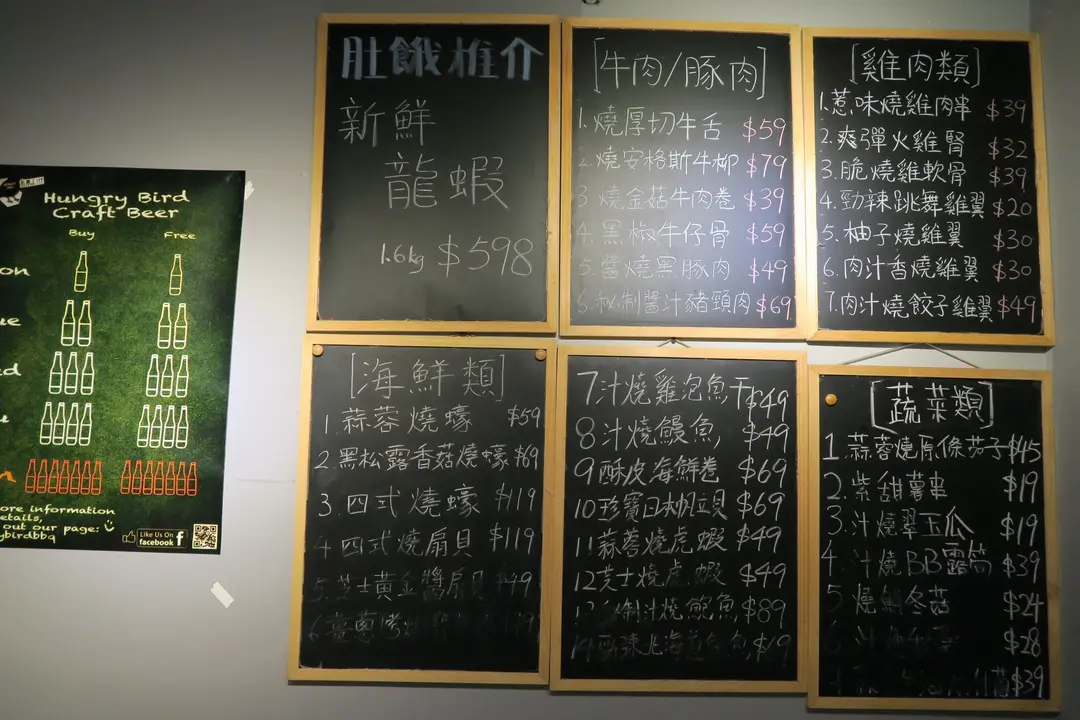 Hungry Bird
Craft Beer
Buy Free
ore information
etails,
out our page:
ybirdbbq
Like Us On
facebook
肚餓推介
新鮮
龍蝦
1.6kg $598
[牛肉/豚肉]
1.燒厚切牛舌 $59
2.燒安格斯牛柳 $79
3.燒金菇牛肉卷 $39
4.黑椒牛仔骨 $59
5.醬燒黑豚肉 $49
6.秘制醬汁豬頸肉 $69
[雞肉類]
1.惹味燒雞肉串 $39
2.爽彈火雞腎 $32
3.脆燒雞軟骨 $39
4.勁辣跳舞雞翼 $20
5.柚子燒雞翼 $30
6.肉汁香燒雞翼 $30
7.肉汁燒餃子雞翼 $49
[海鮮類]
1.蒜蓉燒蠔 $59
2.黑松露香菇燒蠔 $69
3.四式燒蠔 $119
4.四式燒扇貝 $119
5.芝士黃金醬扇貝 $49
6.薑蔥
7汁燒雞泡魚干 $49
8汁燒鰻魚 $49
9酥皮海鮮卷 $69
10珍寶日本帆立貝 $69
11蒜蓉燒虎蝦 $49
12芝士燒虎蝦 $49
制汁燒鮑魚 $89
北海 魚 $19
[蔬菜類]
1.蒜蓉燒原條茄子 $45
2.紫甜薯串 $19
3.汁燒翠玉瓜 $19
4.汁燒BB露筍 $39
5.燒鮮冬菇 $24
$28
$39